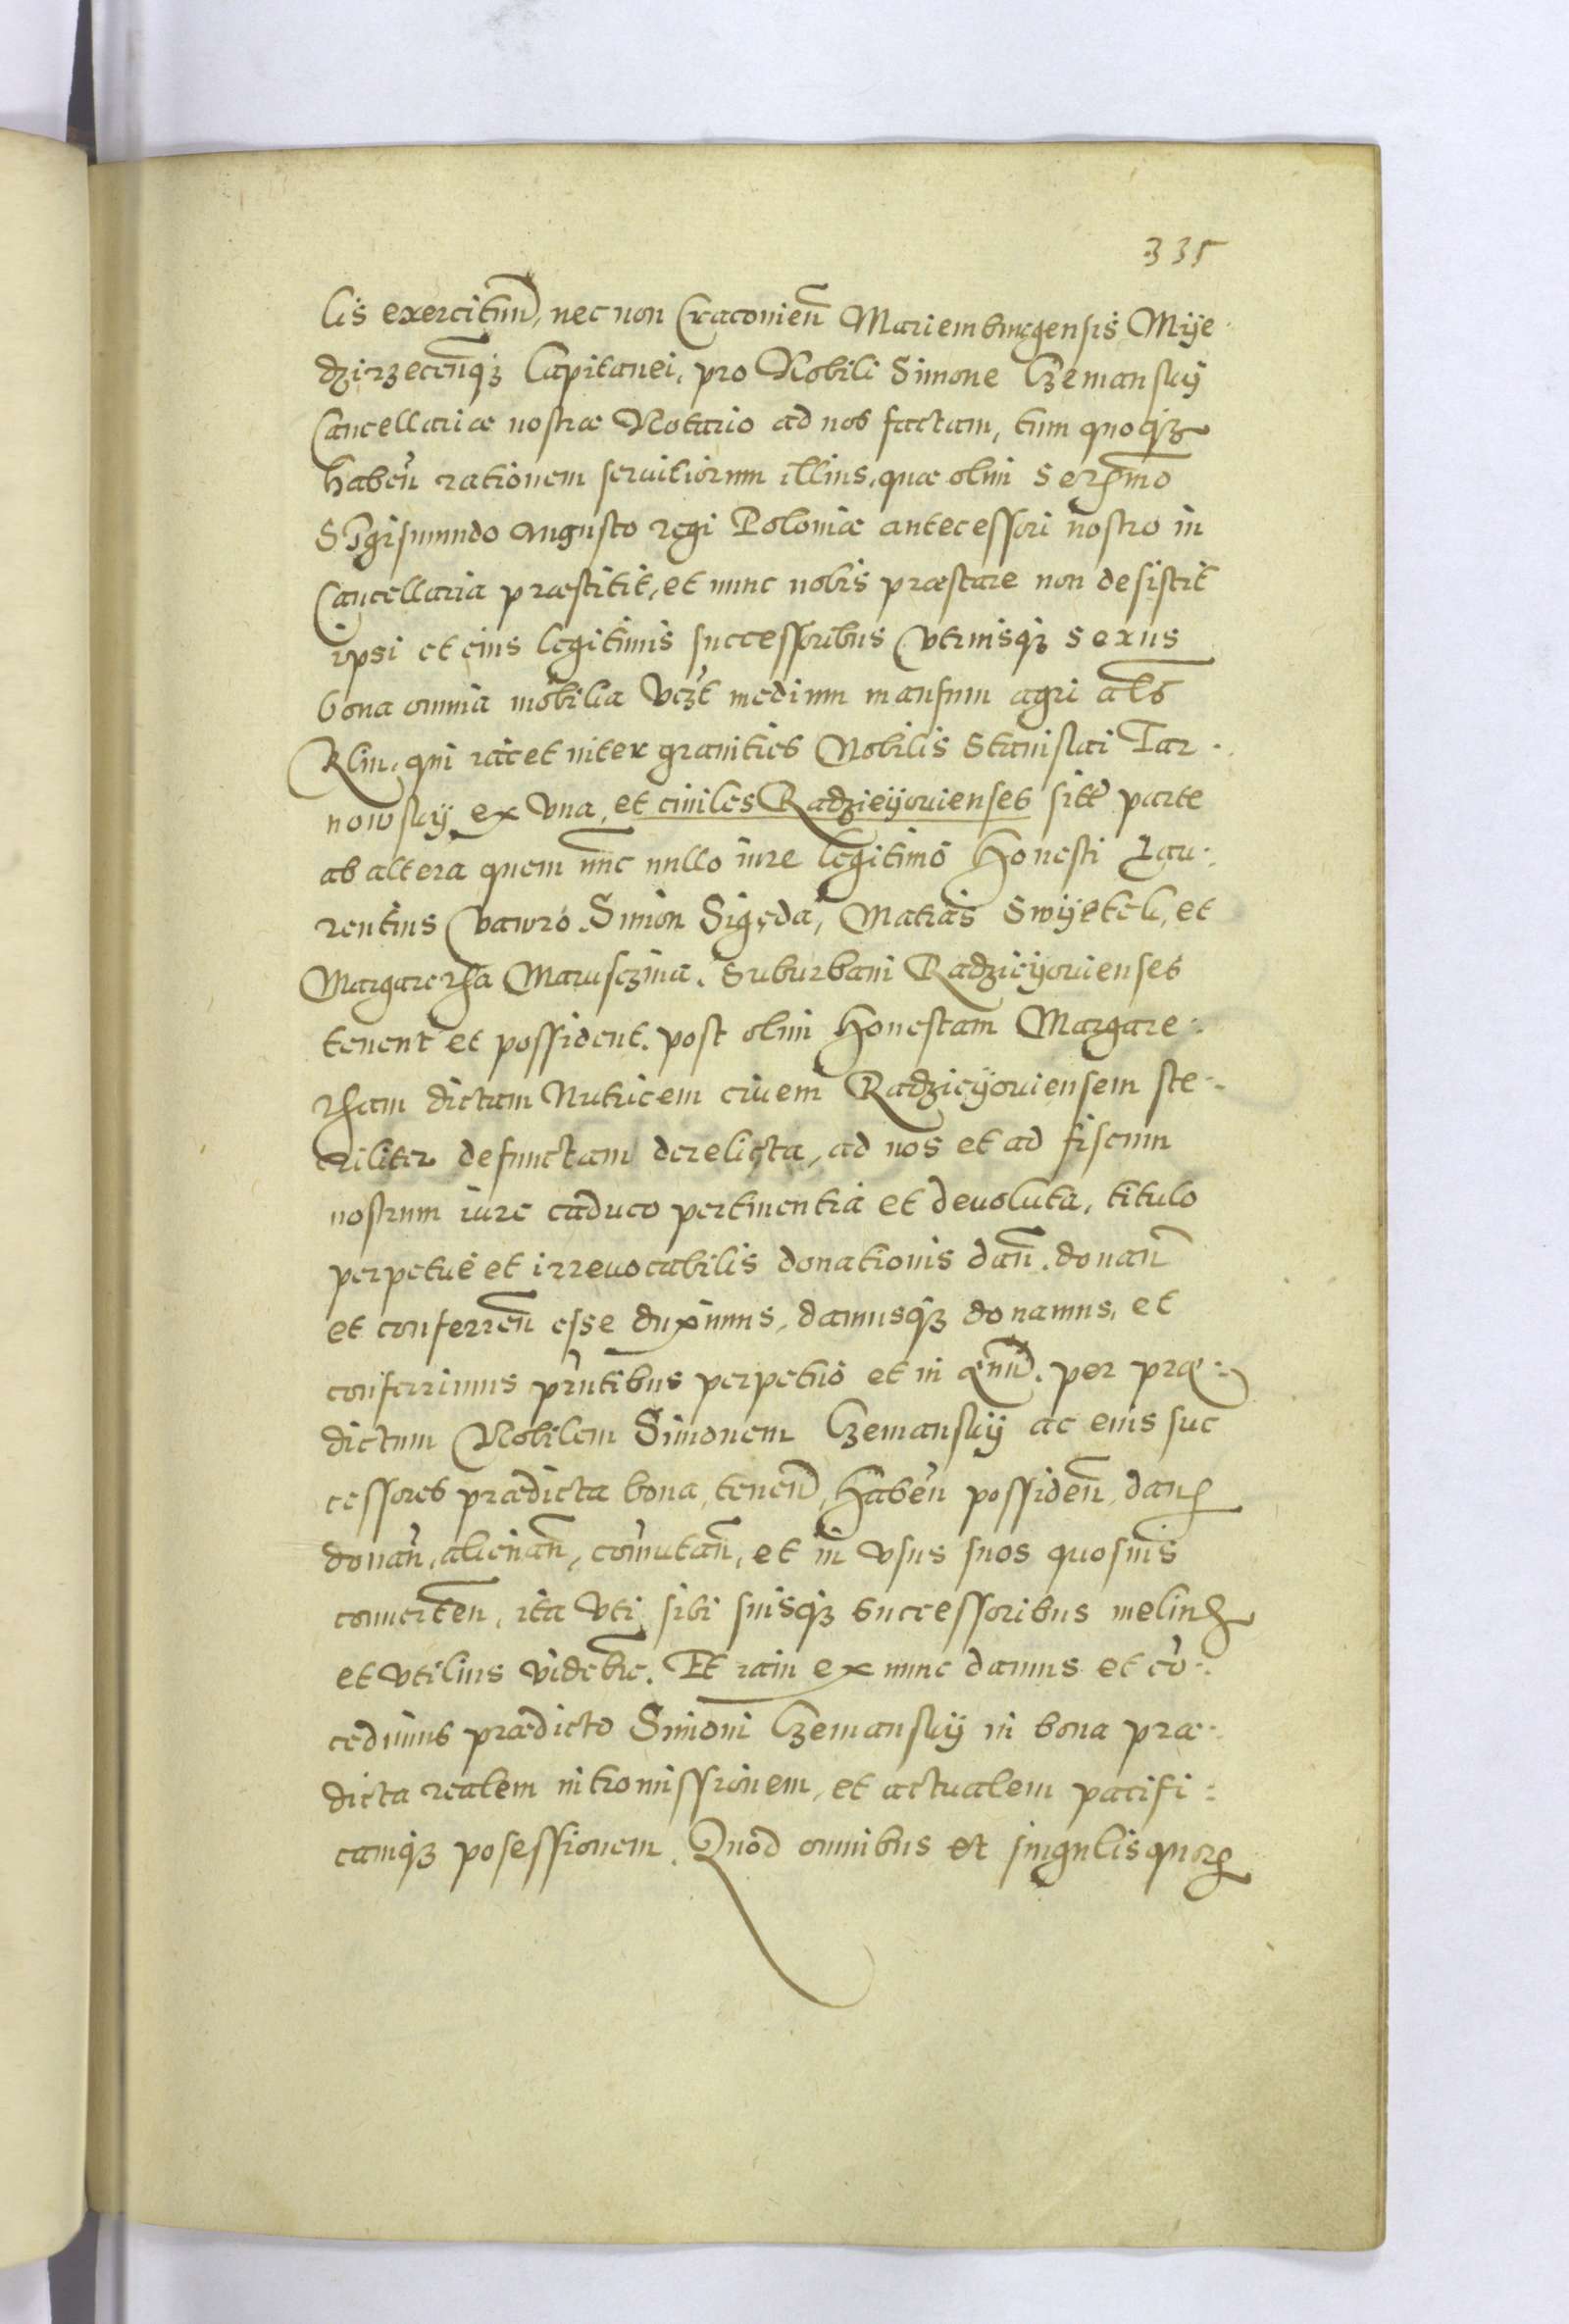 335
lis exercituū, nec non Craconieñ Mariemburgensis Mije
dzirzecenq̃ Capitanei, pro Nobili Simone Czemanskij
Cancellariæ nostræ Notario ad nos factam, tum quoqꝫ
habeñ rationem seruitiorum illius, quæ olim Serẽmo
Sigismundo Augusto regi Poloniæ antecessori nostro in
Cancellaria præstitit, et nunc nobis præstare non desistit
ipsi et eius legitimis successoribus vtriusqꝫ sexus
bona omnia mobilia vczt medium mansum agri als
Klin, qui iacet inter granities Nobilis Stanislai Tar
nowskij ex vna, et ciuiles Radzieijouienses sitt parte
ab altera quem nũc nullo iure legitimo Honesti Lau:
rentius Wawro Simon Sigęda, Matias Swijetck, et
Margaretha Marusczina. Suburbani Radzieijouienses
tenent et possident. post olim Honestam Margare:
tham dictam Nutricem ciuem Radzieijouiensem ste:
riliter defunctam derelicta, ad nos et ad fiscum
nostrum iure caduco pertinentia et deuoluta, titulo
perpetuę et irreuocabilis donationis dañ. donañ
et conferreñ esse duximus, damusqꝫ donamus, et
conferrimus p̃ntibus perpetuo et in æuũ. per præ:
dictum Nobilem Simonem Czemanskij ac eius suc
cessores prædicta bona, teneñ, habeñ possideñ, dañ
donañ, alienañ, cõmutañ, et in vsus suos quosuis
conuerteñ, ita vti sibi suisqꝫ successoribus melius
et vtilius videbr̃. Et iam ex nunc damus et cõ:
cedimus prædicto Simoni Czemanskij in bona præ:
dicta realem intromissionem, et actualem pacifi:
camqꝫ posessionem. Quod omnibus et singulis quorꝫ